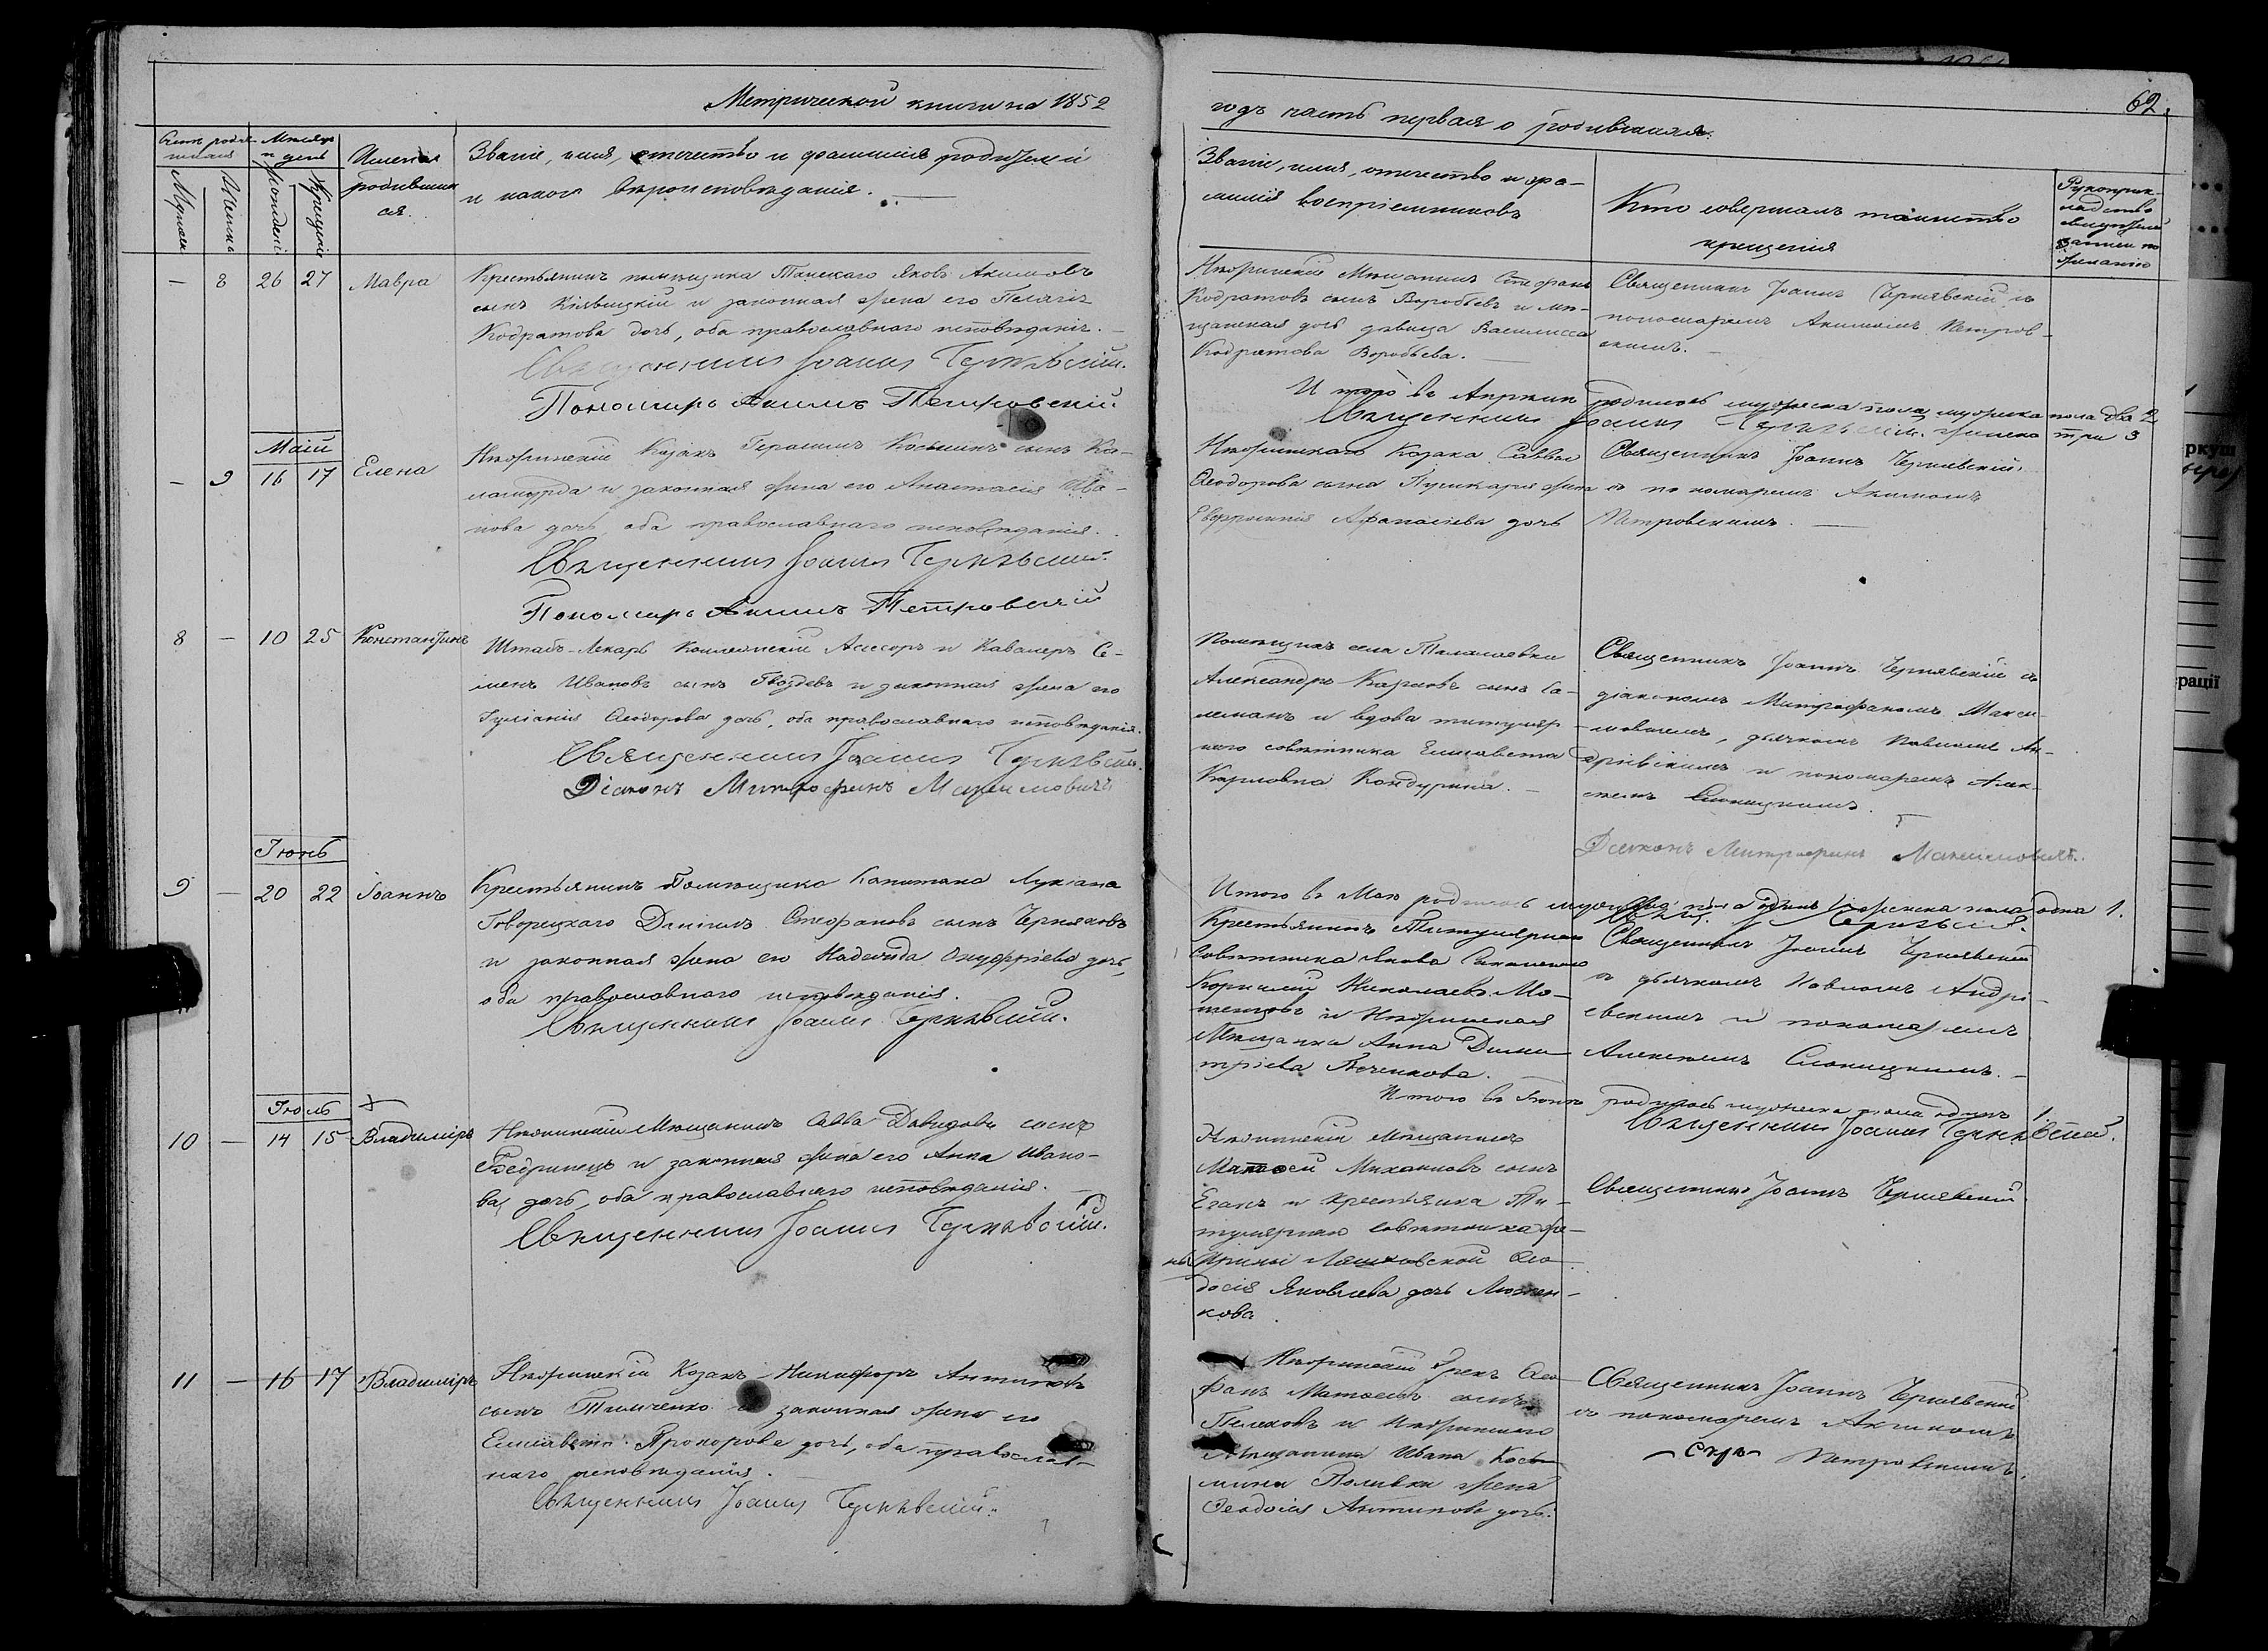 Метрической книги на 1852
годъ часть первая о родившихся.
62.
Счетъ родив-
шихся
Мужеск
Женск
Месяцъ
и день
Рожденія
Крещенія
Имена
родивших
ся.
Званіе, имя, отечество и фамилія родителей
и какого вероисповеданія.
Званіе, имя, отечество и фа-
милія воспріемниковъ
Кто совершалъ таинство
крещенія
Рукоприк-
ладство
свидетелей
записи по
желанію
— 8 26 27 Мавра
Крестьянинъ помещика Яковъ Акимовъ
сынъ и законная жена его Пелагія
Кодратова дочь, оба православнаго исповеданія.
Священникъ Іоаннъ Чернявскій.
Пономарь Акимъ Петровскій.
Нежинскій Мещанинъ Стефанъ
Кодратовъ сынъ Воробьевъ и ме-
щанская дочь девица Василисса
Кодратова Воробьева.
Священникъ Іоаннъ Чернявскій съ
пономаремъ Акимомъ Петров-
скимъ.
Итого въ Апреле родилось мужеска пола два 2
женска три 3
Священникъ Іоаннъ Чернявскій.
Маій
— 9 16 17 Елена
Нежинскій Козакъ Герасимъ Косминъ сынъ Ка-
и законная жена его Анастасія Ива-
нова дочь, оба православнаго исповеданія.
Священникъ Іоаннъ Чернявскій.
Пономарь Акимъ Петровскій
Нежинскаго Козака Саввы
Феодорова сына Пушкаря жена
Евфросинія Афанасіева дочь
Священникъ Іоаннъ Чернявскій
съ пономаремъ Акимомъ
Петровскимъ.
8 — 10 25 Константинъ
Штабъ-Лекарь Коллежскій Асессоръ и Кавалеръ Се-
менъ Ивановъ сынъ Гвоздевъ и законная жена его
Іуліанія Феодорова дочь, оба православнаго исповеданія.
Священникъ Іоаннъ Чернявскій.
Діаконъ Митрофанъ Максимовичъ
Помещикъ села Талалаевки
Александръ Карловъ сынъ Са-
и вдова титуляр-
наго советника Елисавета
Карловна Кандурина.
Священникъ Іоаннъ Чернявскій съ
діакономъ Митрофаномъ Макси-
мовичемъ, дьячкомъ Павломъ Ан-
дріевскимъ и пономаремъ Алек-
сеемъ Слоницкимъ.
Діаконъ Митрофанъ Максимовичъ.
Итого въ Мае родилось мужеска пола одинъ женска пола одна 1.
Іюнь
9 — 20 22 Іоаннъ
Крестьянинъ Помещика Капитана Лукіана
Говорецкаго Даніилъ Стефановъ сынъ Черняковъ
и законная жена его Надежда Онуфріева дочь,
оба православнаго исповеданія.
Священникъ Іоаннъ Чернявскій.
Крестьянинъ Титулярнаго
Советника Якова
Корнилій Николаевъ Мо-
и Нежинская
Мещанка Анна Дими-
тріева Печенкова.
Священникъ Іоаннъ Чернявскій
съ дьячкомъ Павломъ Андрі-
евскимъ и пономаремъ
Алексеемъ Слоницкимъ.
Итого въ Іюне родилось мужеска пола одинъ 1.
Священникъ Іоаннъ Чернявскій.
Іюль
10 — 14 15 Владиміръ
Нежинскій Мещанинъ Савва Давидовъ сынъ
Бедринецъ и законная жена его Анна Ивано-
ва дочь, оба православнаго исповеданія.
Священникъ Іоаннъ Чернявскій.
Нежинскій Мещанинъ
Матфей Михаиловъ сынъ
и крестьянка Ти-
тулярнаго Советника же-
ны Ирины Феo-
досія Яковлева дочь
кова
Священникъ Іоаннъ Чернявскій
11 — 16 17 Владиміръ
Нежинскій Козакъ Никифоръ Антиповъ
сынъ Тимченко и законная жена его
Елисавета Прохорова дочь, оба православ-
наго исповеданія.
Священникъ Іоаннъ Чернявскій.
Нежинскій Грекъ Фео-
фанъ Матфеевъ сынъ
и Нежинскаго
Мещанина Ивана Кось-
мина Поливки жена
Феодосія Антипова дочь.
Священникъ Іоаннъ Чернявскій
съ пономаремъ Акимомъ
Петровскимъ.